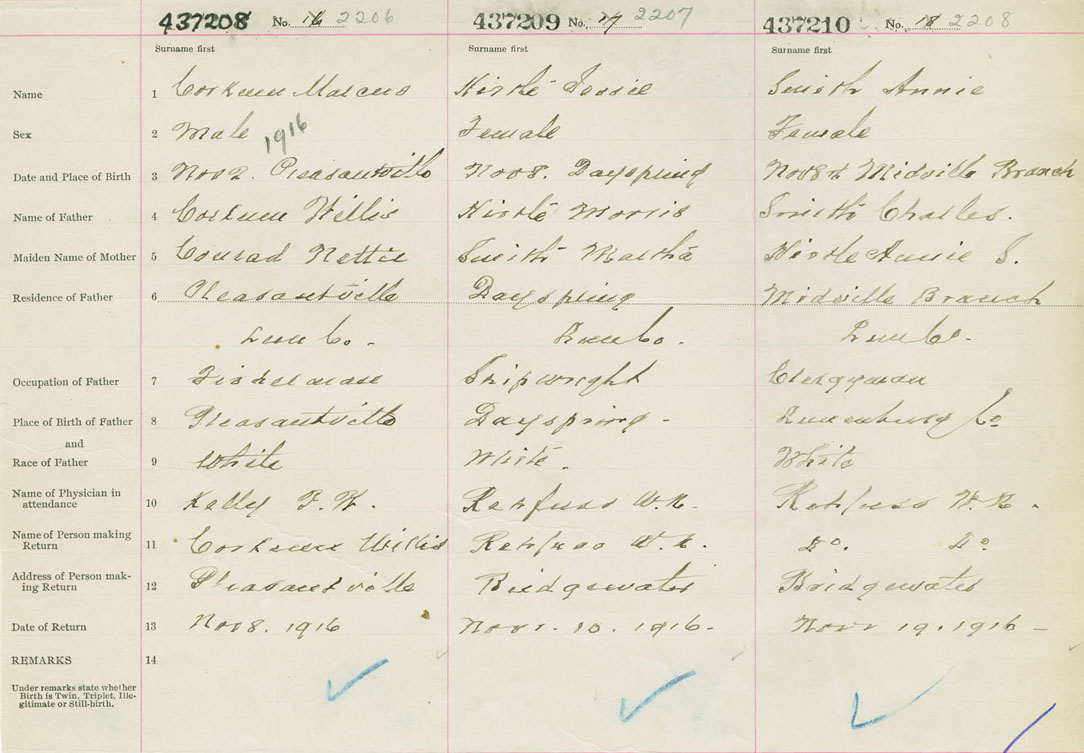 437208 No. 16 2206 437209 No. 17 2207 437210 No. 18 2208
Surname first Surname first Surname first
Name 1 Corkum Marcus Hirtle Jessie Smith Annie
Sex 2 Male Female Female
1916
Date and Place of Birth 3 Nov 2. Pleasantville Nov 8. Dayspring Nov 8th Midville Branch
Name of Father 4 Corkum Willis Hirtle Morris Smith Charles.
Maiden Name of Mother 5 Conrad Nettie Smith Martha Hirtle Annie S.
Residence of Father 6 Pleasantville Dayspring Midville Branch
Lun Co. Lun Co. Lun Co.
Occupation of Father 7 Shipwright Clergyman
Place of Birth of Father 8 Pleasantville Dayspring - Lunenburg Co
and
Race of Father 9 White White. White
Name of Physician in
attendance 10 Kelly F. W. Rehfuss W. N. Rehfuss W. N.
Name of Person making
Return 11 Corkum Willis Rehfuss W. N. Do. Do
Address of Person mak-
ing Return 12 Pleasantville Bridgewater Bridgewater
Date of Return 13 Nov 8. 1916 Novr. 10. 1916- Novr 19. 1916 -
REMARKS 14
Under remarks state whether
Birth is Twin. Triplet, Ille-
gitimate or Still-birth.